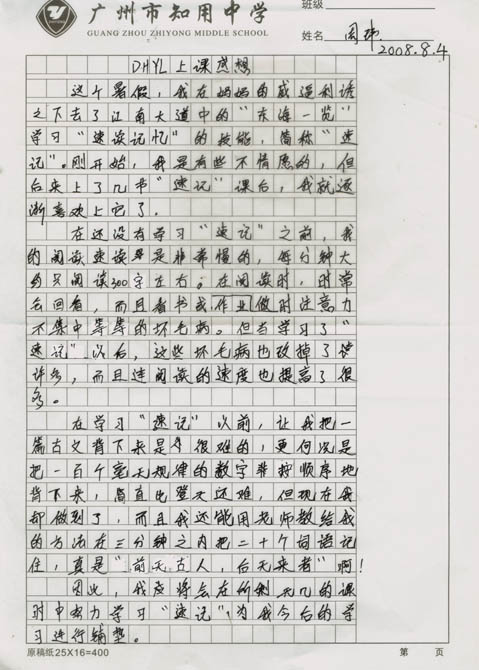 广州市知用中学
GUANG ZHOU ZHIYONG MIDDLE SCHOOL
班级
姓名 周祎
2008.8.4
DHYL上课感想
这个暑假,我在妈妈的威逼利诱
之下去了江南大道中的"东海一览"
学习"速读记忆"的技能,简称"速
记"。刚开始,我是有些不情愿的,但
后来上了几节"速记"课后,我就逐
渐喜欢上它了。
在还没有学习"速记"之前,我
的阅读速读是非常慢的,每分钟大
约只阅读300字左右。在阅读时,时常
会回看,而且看书或作业做时注意力
不集中等等的坏毛病。但当学习了"
速记"以后,这些坏毛病也改掉了
许多,而且连阅读的速度也提高了很
多。
在学习"速记"以前,让我把一
篇古文背下来是很难的,更何况是
把一百个毫无规律的数字按顺序地
背下来,简直比登天还难,但现在我
却做到了,而且我还能用老师教给我
的方法在三分钟之内把二十个词语记
住,真是"前无古人,后无来者"啊!
因此,我应将会在所剩无几的课
时中努力学习"速记",为我今后的学
习进行铺垫。
原稿纸25X16=400
第 页